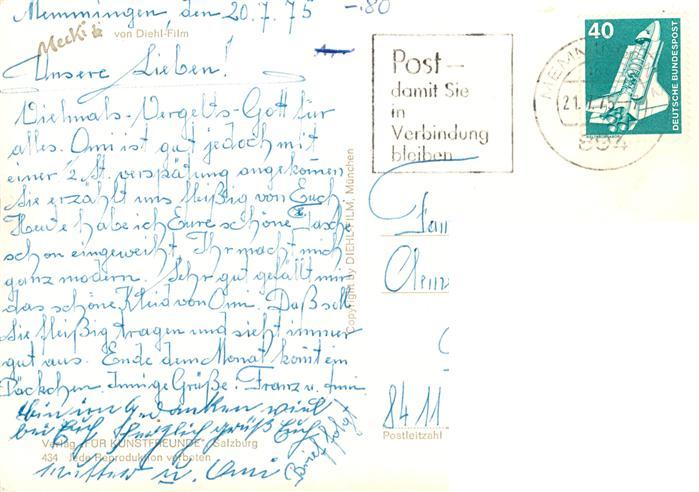 Memmingen, den 20.7.75 -.80
Mecki
von Diehl-Film
Unsere Lieben!
Vielmals-Vergelts-Gott für
alles. Omi ist gut jedoch mit
einer 2 St. verspätung angekommen
Sie erzählt uns fleißig von Euch
Heute habe ich Eure schöne Tasche
schon eingeweiht. Ihr macht mich
ganz modern. Sehr gut gefällt mir
das schöne Kleid von Omi. Daß soll
Sie fleißig tragen und sieht immer
gut aus. Ende dem Monat komt ein
Päckchen. Innige Grüße. Franz u.
bin in Gedanken viel
bei Euch herzlich grüßt Euch
Mutter u. Omi
Brief folgt
Verlag "FÜR KUNSTFREUNDE", Salzburg
434 Jede Reproduktion verboten
Copyright by DIEHL-FILM, München
Post –
damit Sie
in
Verbindung
bleiben
MEMM
21.7.75
894
40
DEUTSCHE BUNDESPOST
Fam
8411
Postleitzahl